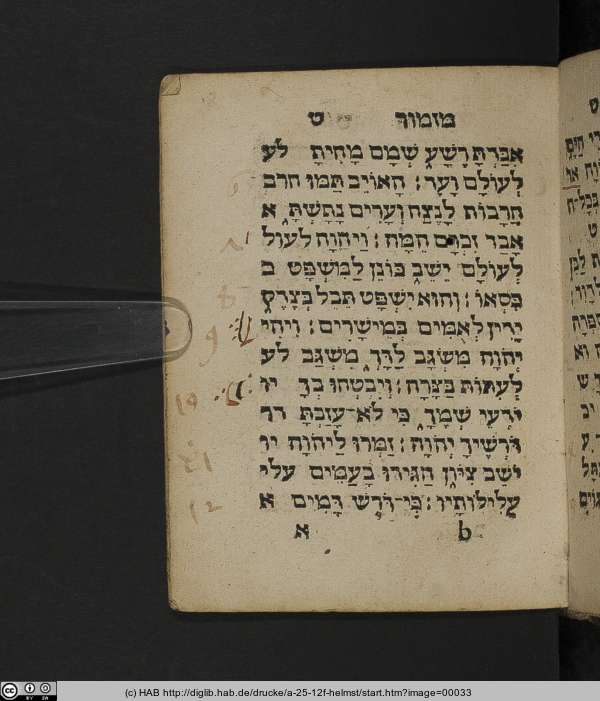 מזמור ט
אִבַּדְתָּ רָשָׁע שְׁמָם מָחִיתָ לע
לְעוֹלָם וָעֶד׃ הָאוֹיֵב תַּמּוּ חרב
חֳרָבוֹת לָנֶצַח וְעָרִים נָתַשְׁתָּ א
אבַד זִכְרָם הֵמָּה׃ וַיהוָה לעול
לְעוֹלָם יֵשֵׁב כּוֹנֵן לַמִּשְׁפָּט כ
כִּסְאוֹ׃ וְהוּא יִשְׁפֹּט תֵּבֵל בְּצֶדֶק
יָדִין לְאֻמִּים בְּמֵישָׁרִים׃ וִיהִי
יְהוָה מִשְׂגָּב לַדָּךְ מִשְׂגָּב לע
לְעִתּוֹת בַּצָּרָה׃ וְיִבְטְחוּ בְךָ יו
יוֹדְעֵי שְׁמֶךָ כִּי לֹא־עָזַבְתָּ דר
דֹּרְשֶׁיךָ יְהוָה׃ זַמְּרוּ לַיהוָה יו
יֹשֵׁב צִיּוֹן הַגִּידוּ בָעַמִּים עלי
עֲלִילוֹתָיו׃ כִּי־דֹרֵשׁ דָּמִים א
b א
9
10
12
(c) HAB http://diglib.hab.de/drucke/a-25-12f-helmst/start.htm?image=00033